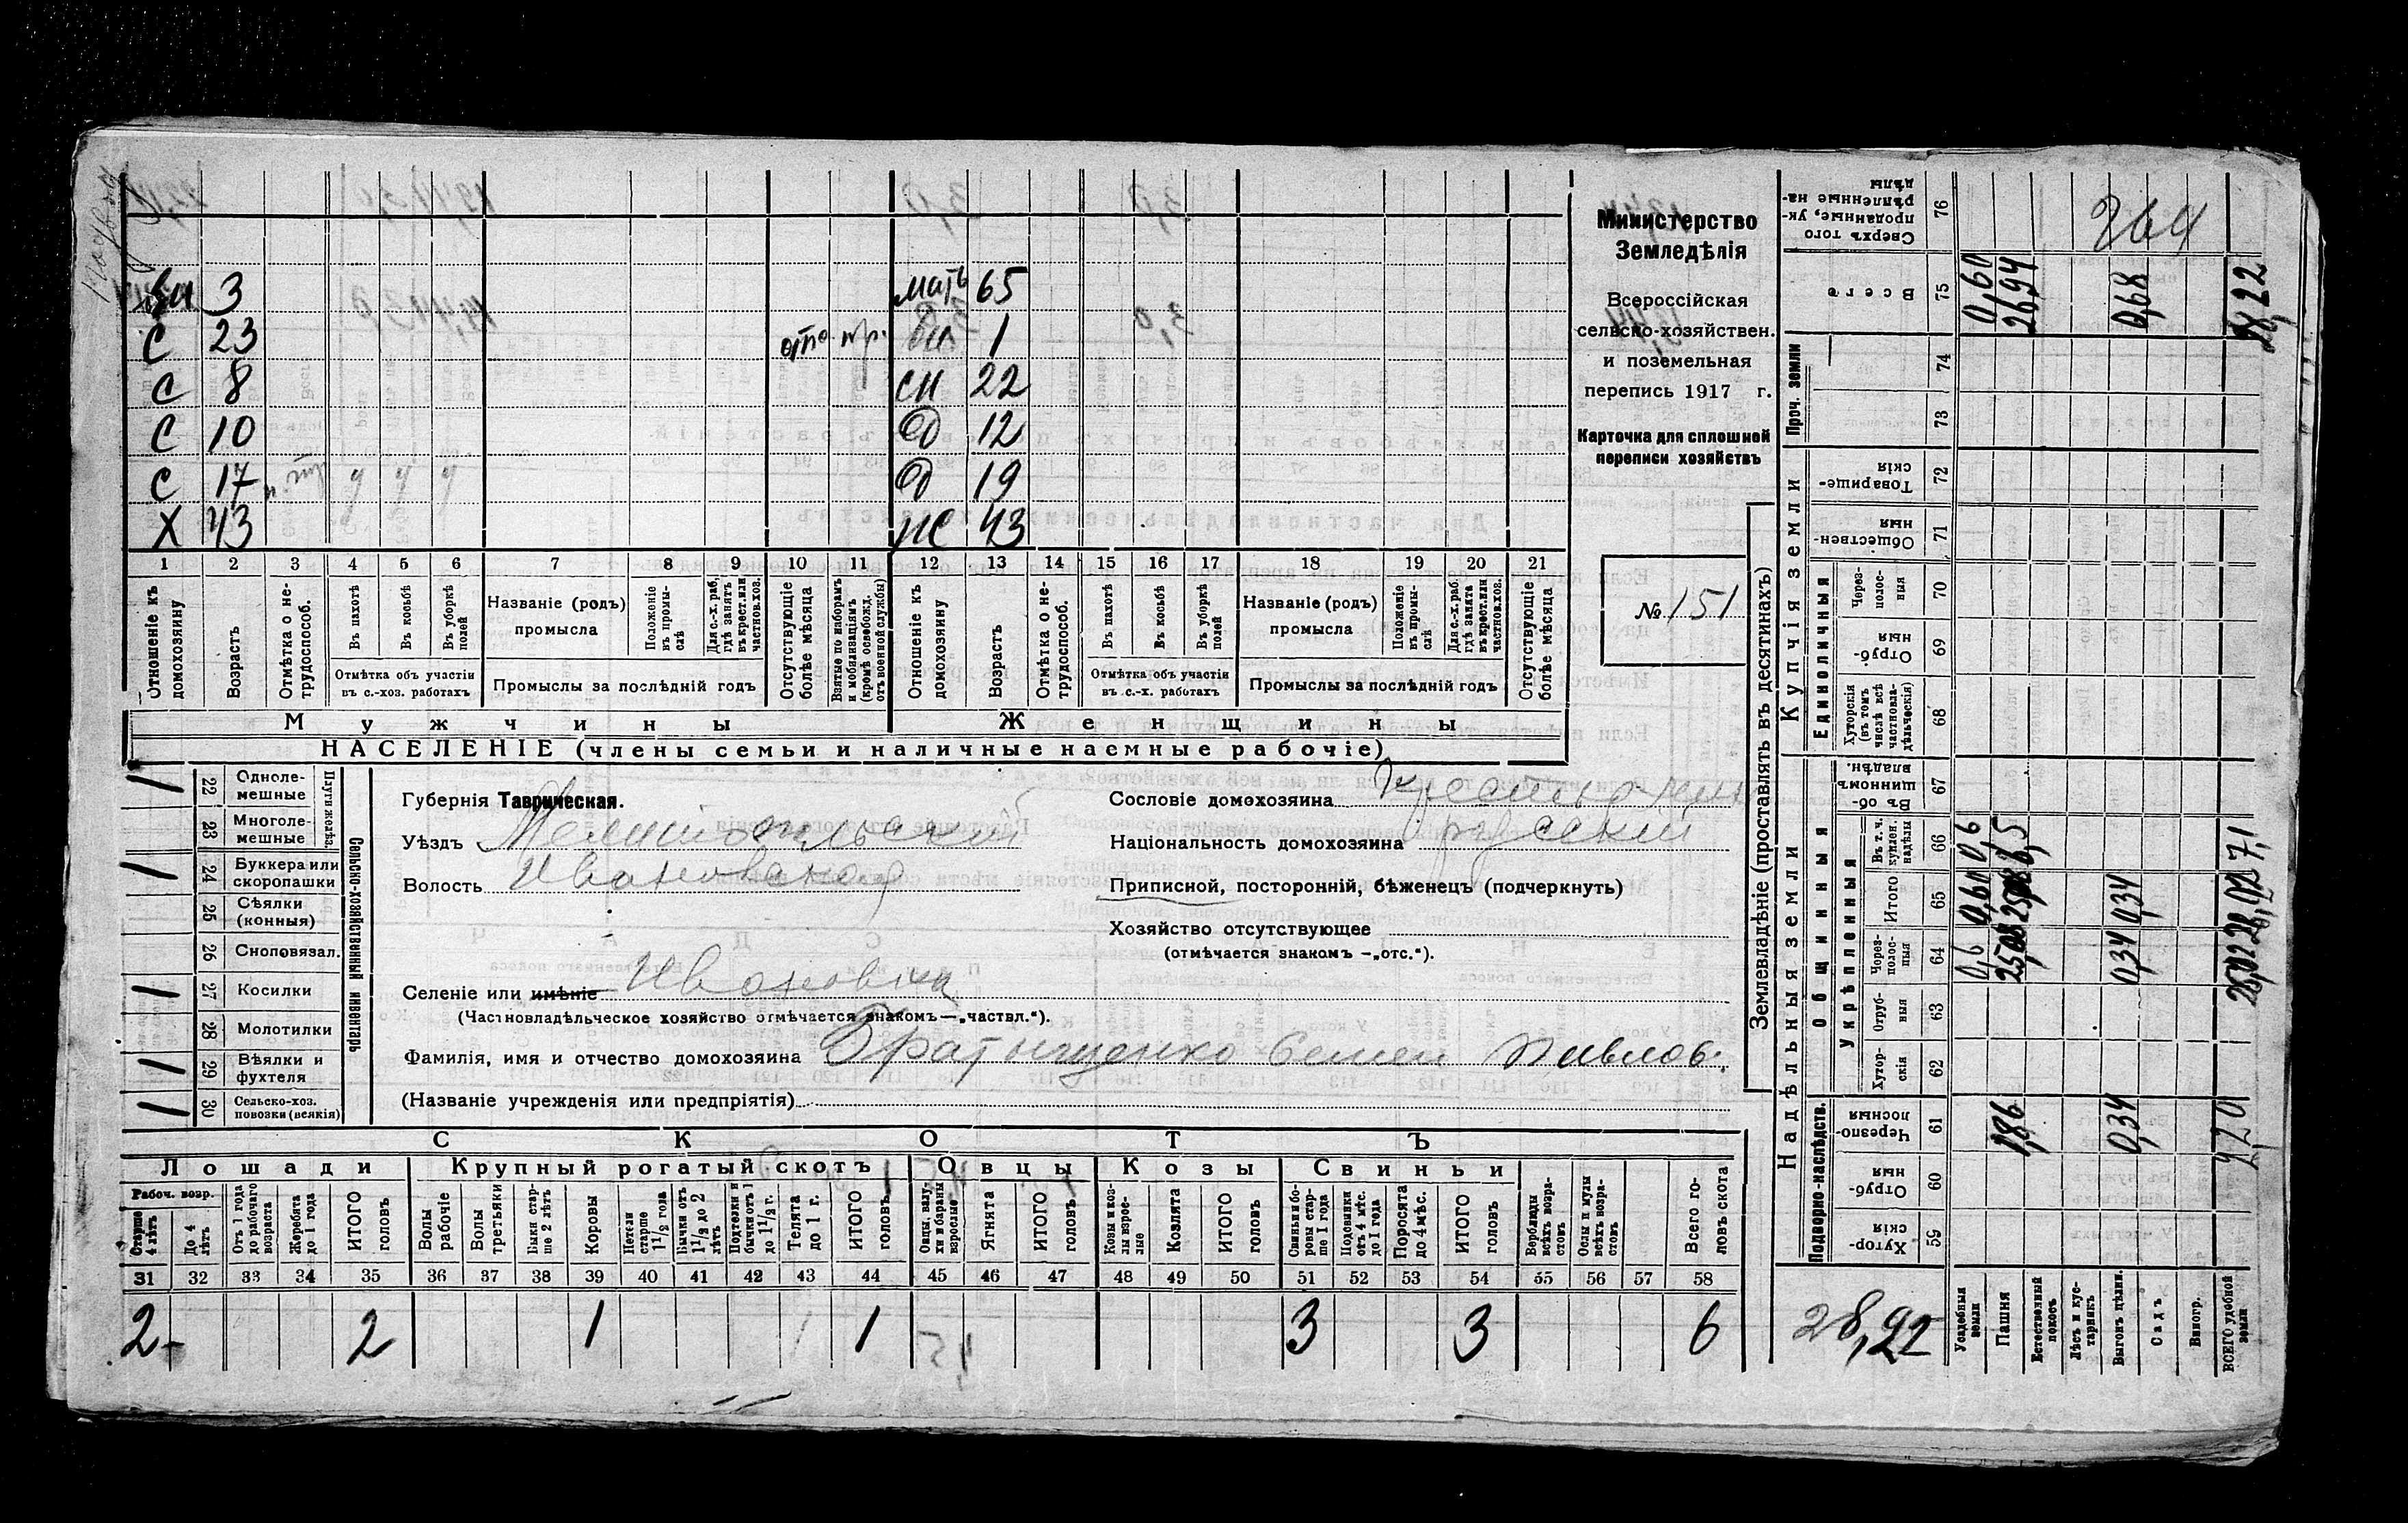 вн 3 мать 65
С 23 отс. вн 1
С 8 сн 22
С 10 Д 12
С 17 Д 19
Х 43 ж 43
1 2 3 4 5 6 7 8 9 10 11 12 13 14 15 16 17 18 19 20 21
Отношеніе къ домохозяину
Возрастъ
Отмѣтка о нетрудоспособ.
Въ пахотѣ
Въ косьбѣ
Въ уборкѣ полей
Отмѣтка объ участіи въ с.-хоз. работахъ
Названіе (родъ) промысла
Положеніе въ промыслѣ
Для с.-х. раб, гдѣ занятъ въ крест. или частнов. хоз.
Промыслы за послѣдній годъ
Отсутствующіе болѣе мѣсяца
Взятые по наборамъ и мобилизаціямъ (кромѣ освобожд. отъ военной службы)
Отношеніе къ домохозяину
Возрастъ
Отмѣтка о нетрудоспособ.
Въ пахотѣ
Въ косьбѣ
Въ уборкѣ полей
Отмѣтка объ участіи въ с.-х. работахъ
Названіе (родъ) промысла
Положеніе въ промыслѣ
Для с.-х. раб. гдѣ занята въ крест. или частнов. хоз.
Промыслы за послѣдній годъ
Отсутствующіе болѣе мѣсяца
Мужчины Женщины
НАСЕЛЕНІЕ (члены семьи и наличные наемные рабочіе)
Министерство
Земледѣлія
Всероссійская
сельско-хозяйствен.
и поземельная
перепись 1917 г.
Карточка для сплошной
переписи хозяйствъ
№ 151
Сельско-хозяйственный инвентарь
Плуги желѣз.
1 22 Однолемешные
23 Многолемешные
1 24 Буккера или скоропашки
25 Сѣялки (конныя)
26 Сноповязал.
1 27 Косилки
28 Молотилки
1 29 Вѣялки и фухтеля
1 30 Сельско-хоз. повозки (всякія)
Губернія Таврическая.
Уѣздъ Мелитопольскій
Волость Ивановская
Сословіе домохозяина
Національность домохозяина русскій
Приписной, посторонній, бѣженецъ (подчеркнуть)
Хозяйство отсутствующее
(отмѣчается знакомъ —„отс.“).
Селеніе или имѣніе Ивановка
(Частновладѣльческое хозяйство отмѣчается знакомъ—„частвл.“).
Фамилія, имя и отчество домохозяина Братыщенко Семен Павлов.
(Названіе учрежденія или предпріятія)
СКОТЪ
Лошади Крупный рогатый скотъ Овцы Козы Свиньи
Рабоч. возр.
Старше 4 лѣтъ
До 4 лѣтъ
Отъ 1 года до рабочаго возраста
Жеребята до 1 года
ИТОГО головъ
Волы рабочіе
Волы третьяки
Быки старше 2 лѣтъ
Коровы
Нетели старше 1½ года
Бычки отъ 1½ до 2 лѣтъ
Подтелки и бычки отъ 1 до 1½ г.
Телята до 1 г.
ИТОГО головъ
Овцы, валухи и бараны взрослые
Ягнята
ИТОГО головъ
Козы и козлы взрослые
Козлята
ИТОГО головъ
Свиньи и боровы старше 1 года
Подсвинки отъ 4 мѣс. до 1 года
Поросята до 4 мѣс.
ИТОГО головъ
Верблюды всѣхъ возрастовъ
Ослы и мулы всѣхъ возрастовъ
Всего головъ скота
31 32 33 34 35 36 37 38 39 40 41 42 43 44 45 46 47 48 49 50 51 52 53 54 55 56 57 58
2 2 1 1 3 3 6
Землевладѣніе (проставлять въ десятинахъ)
Надѣльныя земли Купчія земли Проч. земли
Подворно-наслѣдств.
Общинныя
Укрѣпленныя
Единоличныя
Сверхъ того проданные, укрѣпленные надѣлы 76
Всего 75
74
73
Товарищескія 72
Общественныя 71
Черезполосныя 70
Отрубныя 69
Хуторскія (въ томъ числѣ всѣ частновладѣльческія) 68
Въ общинномъ владѣн. 67
Въ т. ч. куплен. надѣлы 66
Итого 65
Черезполосныя 64
Отрубныя 63
Хуторскія 62
Черезполосныя 61
Отрубныя 60
Хуторскія 59
264
0,60 26,94 0,68 28,22
0,6 6,5 7,1
0,60 25,08 0,34 26,02
0,6 25,08 0,34 26,02
1,86 0,34 2,20
28,22
Усадебныя земли
Пашня
Естественный покосъ
Лѣсъ и кустарникъ
Выгонъ цѣлин.
Садъ
Виногр.
ВСЕГО удобной земли